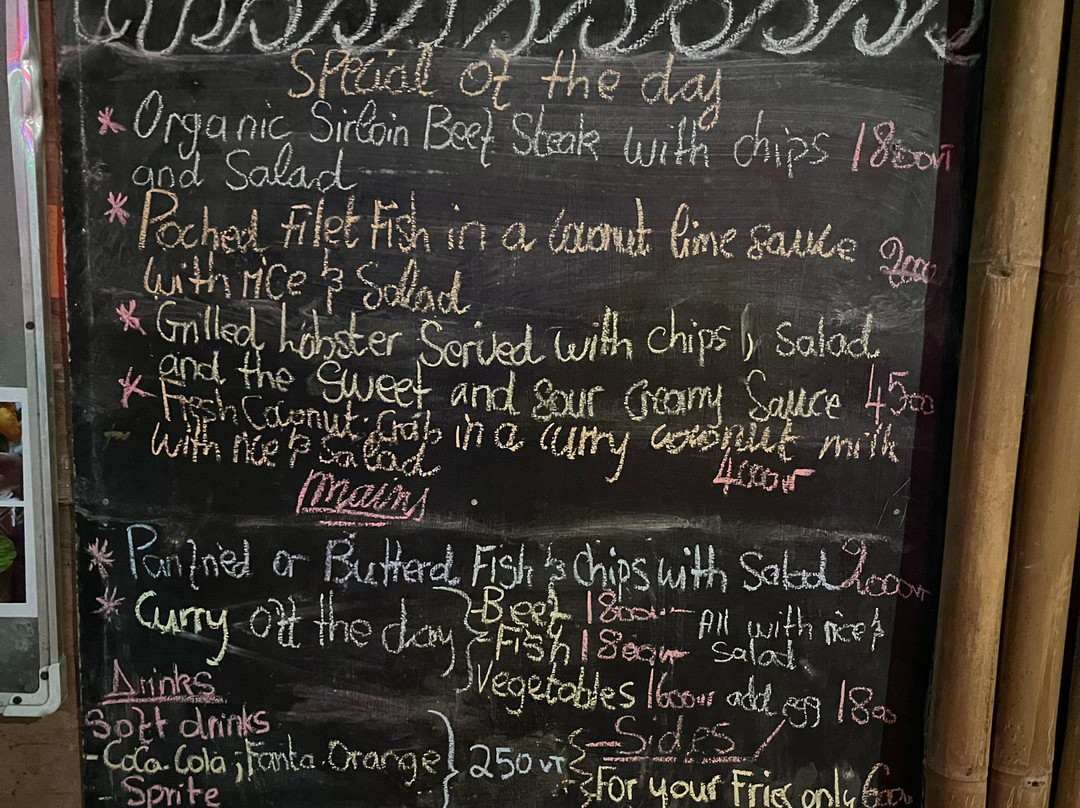 Special of the day
* Organic Sirloin Beef Steak with chips 1800vT
and Salad
* Poched Filet Fish in a Coconut lime sauce 2000
with rice & Salad
* Grilled Lobster Served with chips & Salad
and the Sweet and Sour Creamy Sauce 4500
* Fresh Coconut Crab in a Curry coconut milk
with rice & Salad 4000vT
Mains
* Panfried or Butterd Fish & Chips with Salad 2000vT
* Curry off the day Beef 1800vT All with rice &
Fish 1800vT salad
Vegetables 1600vT add egg 1800
Drinks
Soft drinks Sides
- Coca-Cola; Fanta Orange 250 VT
- Sprite For your Fries only 600